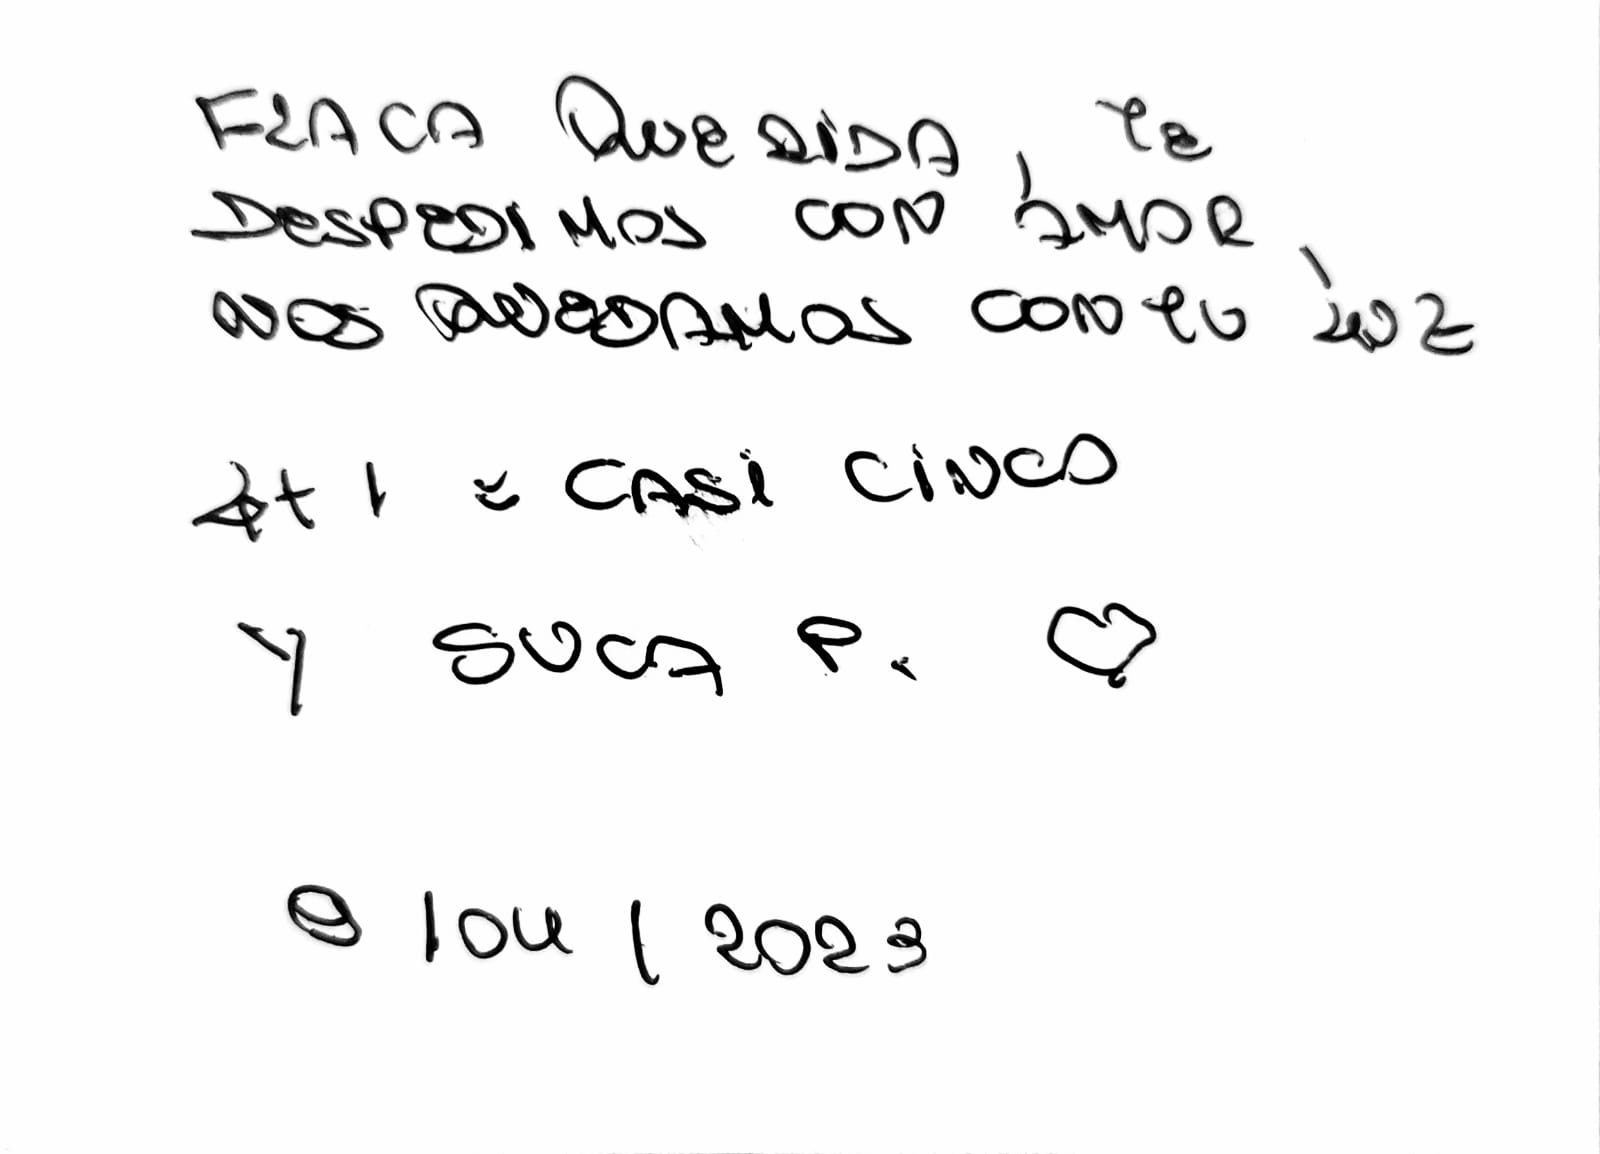 FLACA QUERIDA, te
DESPEDIMOS CON AMOR,
NOS QUEDAMOS CON tU LUZ
4+1 = CASI CINCO
Y SUCA P. ♡
9/04/2023